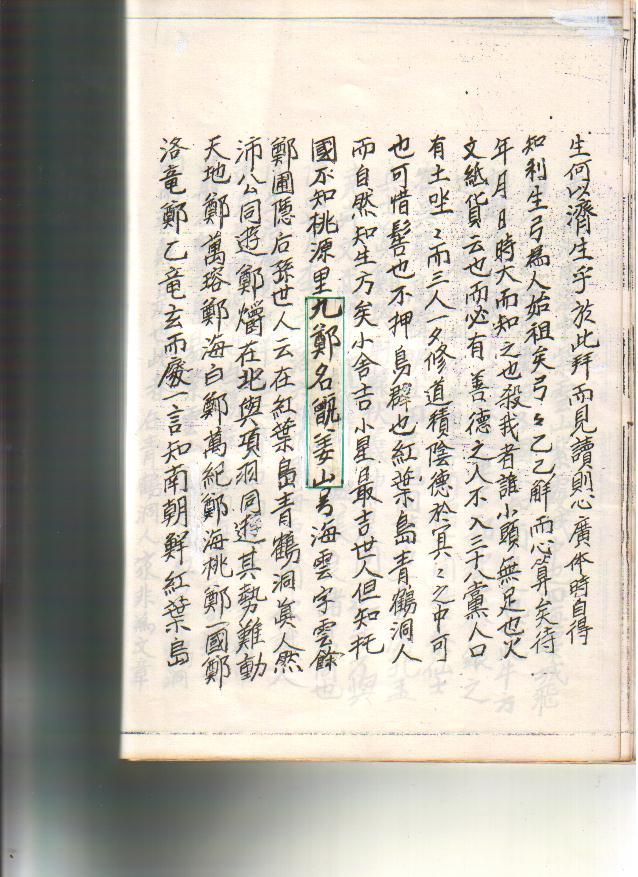 生何以濟生乎於此拜而見讀則心廣体時自得
知利生弓爲人始祖矣弓々乙乙解而心算矣待
年月日時大而知之也殺我者誰小頭無足也火
文紙貨云也而必有善德之人不入三十八黨人口
有土坐〻而三人一夕修道積陰德於冥〻之中可
也可惜髫也不押島稱也紅葉島青鶴洞人
而自然知生方矣小舍吉小星最吉世人但知托
國不知桃源里九鄭名甑姜山号海雲字雲餘
鄭圃隱后孫世人云在紅葉島青鶴洞眞人然
沛公同遊鄭爝在北與項羽同遊其勢難動
天地鄭萬瑢鄭海白鄭萬紀鄭海桃鄭一國鄭
洛竜鄭乙竜玄而廢一言知南朝鮮紅葉島